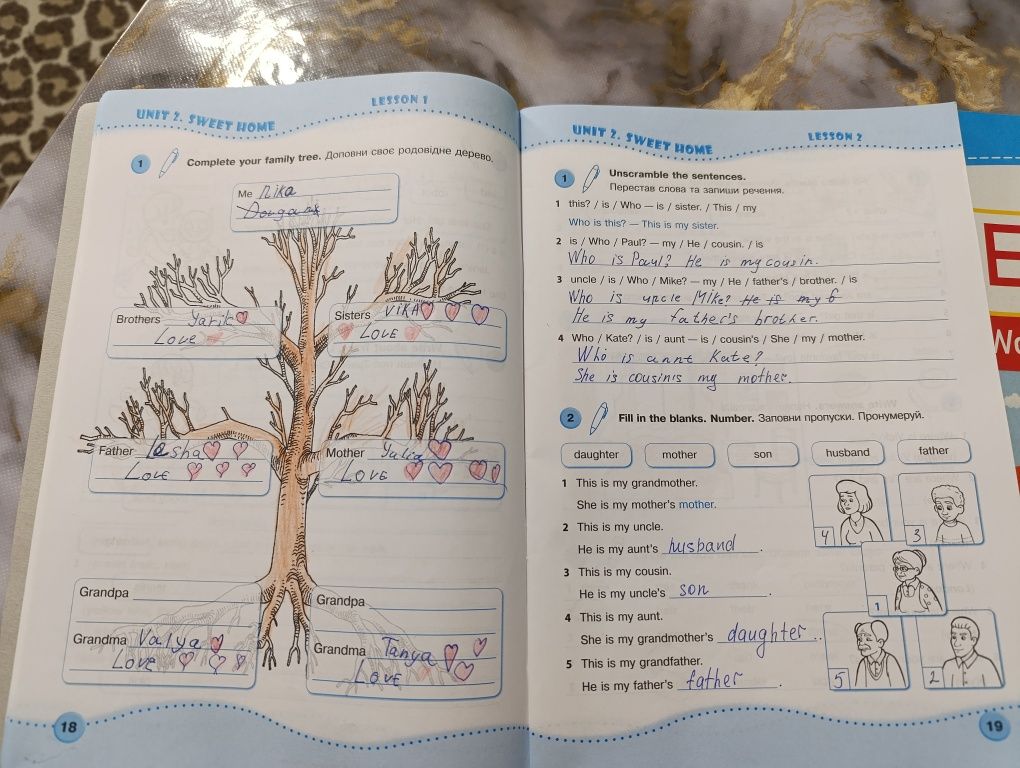 UNIT 2. SWEET HOME
LESSON 1
1 Complete your family tree. Доповни своє родовідне дерево.
Me Nika
Brothers Yarik
Love
Sisters VIKA
LOVE
Father Lesha
LOVE
Mother Yulia
LOVE
Grandpa
Grandma Valya
Love
Grandpa
Grandma Tanya
LOVE
18
UNIT 2. SWEET HOME
LESSON 2
1 Unscramble the sentences.
Перестав слова та запиши речення.
1 this? / is / Who — is / sister. / This / my
Who is this? — This is my sister.
2 is / Who / Paul? — my / He / cousin. / is
Who is Paul? He is my cousin.
3 uncle / is / Who / Mike? — my / He / father's / brother. / is
Who is uncle Mike? He is my b
He is my father's brother.
4 Who / Kate? / is / aunt — is / cousin's / She / my / mother.
Who is annt Kate?
She is cousin's my mother.
2 Fill in the blanks. Number. Заповни пропуски. Пронумеруй.
daughter mother son husband father
1 This is my grandmother.
She is my mother's mother.
2 This is my uncle.
He is my aunt's husband.
3 This is my cousin.
He is my uncle's son.
4 This is my aunt.
She is my grandmother's daughter.
5 This is my grandfather.
He is my father's father.
4
3
1
5
2
19
E